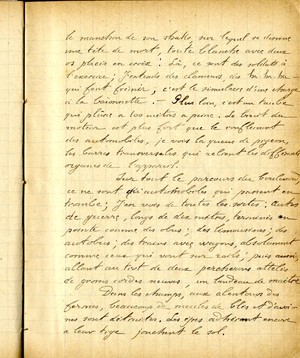 le manchon de son shako, sur lequel se dessine
une tête de mort, toute blanche avec deux
os placés en croix : Là, ce sont des soldats à
l'exercice ; j'entends des clameurs, des ha ha ha
qui font frémir, c'est le simulacre d'une charge
à la baïonnette. — Plus loin, c'est un
qui plane à 100 mètres à peine. Le bruit du
moteur est plus fort que le ronflement
des automobiles, je vois la queue de
les barres transversales qui relient les différents
organes de l'appareil.
Sur tout le parcours du
ce ne sont qu'automobiles qui passent en
trombe ; J'en vois de toutes les sortes : autos
de guerre, longs de dix mètres, terminés en
pointe comme des obus ; des limousines ; des
autobus ; des trams avec wagons, absolument
comme ceux qui vont sur rails ; puis aussi,
allant au trot de deux percherons attelés
de grosses cordes neuves, un landau de maître
Dans les champs, aux alentours des
fermes, beaucoup de meules de blés et d'avoi-
nes sont détruites. Les épis adhérant encore
à leur tige jonchent le sol.